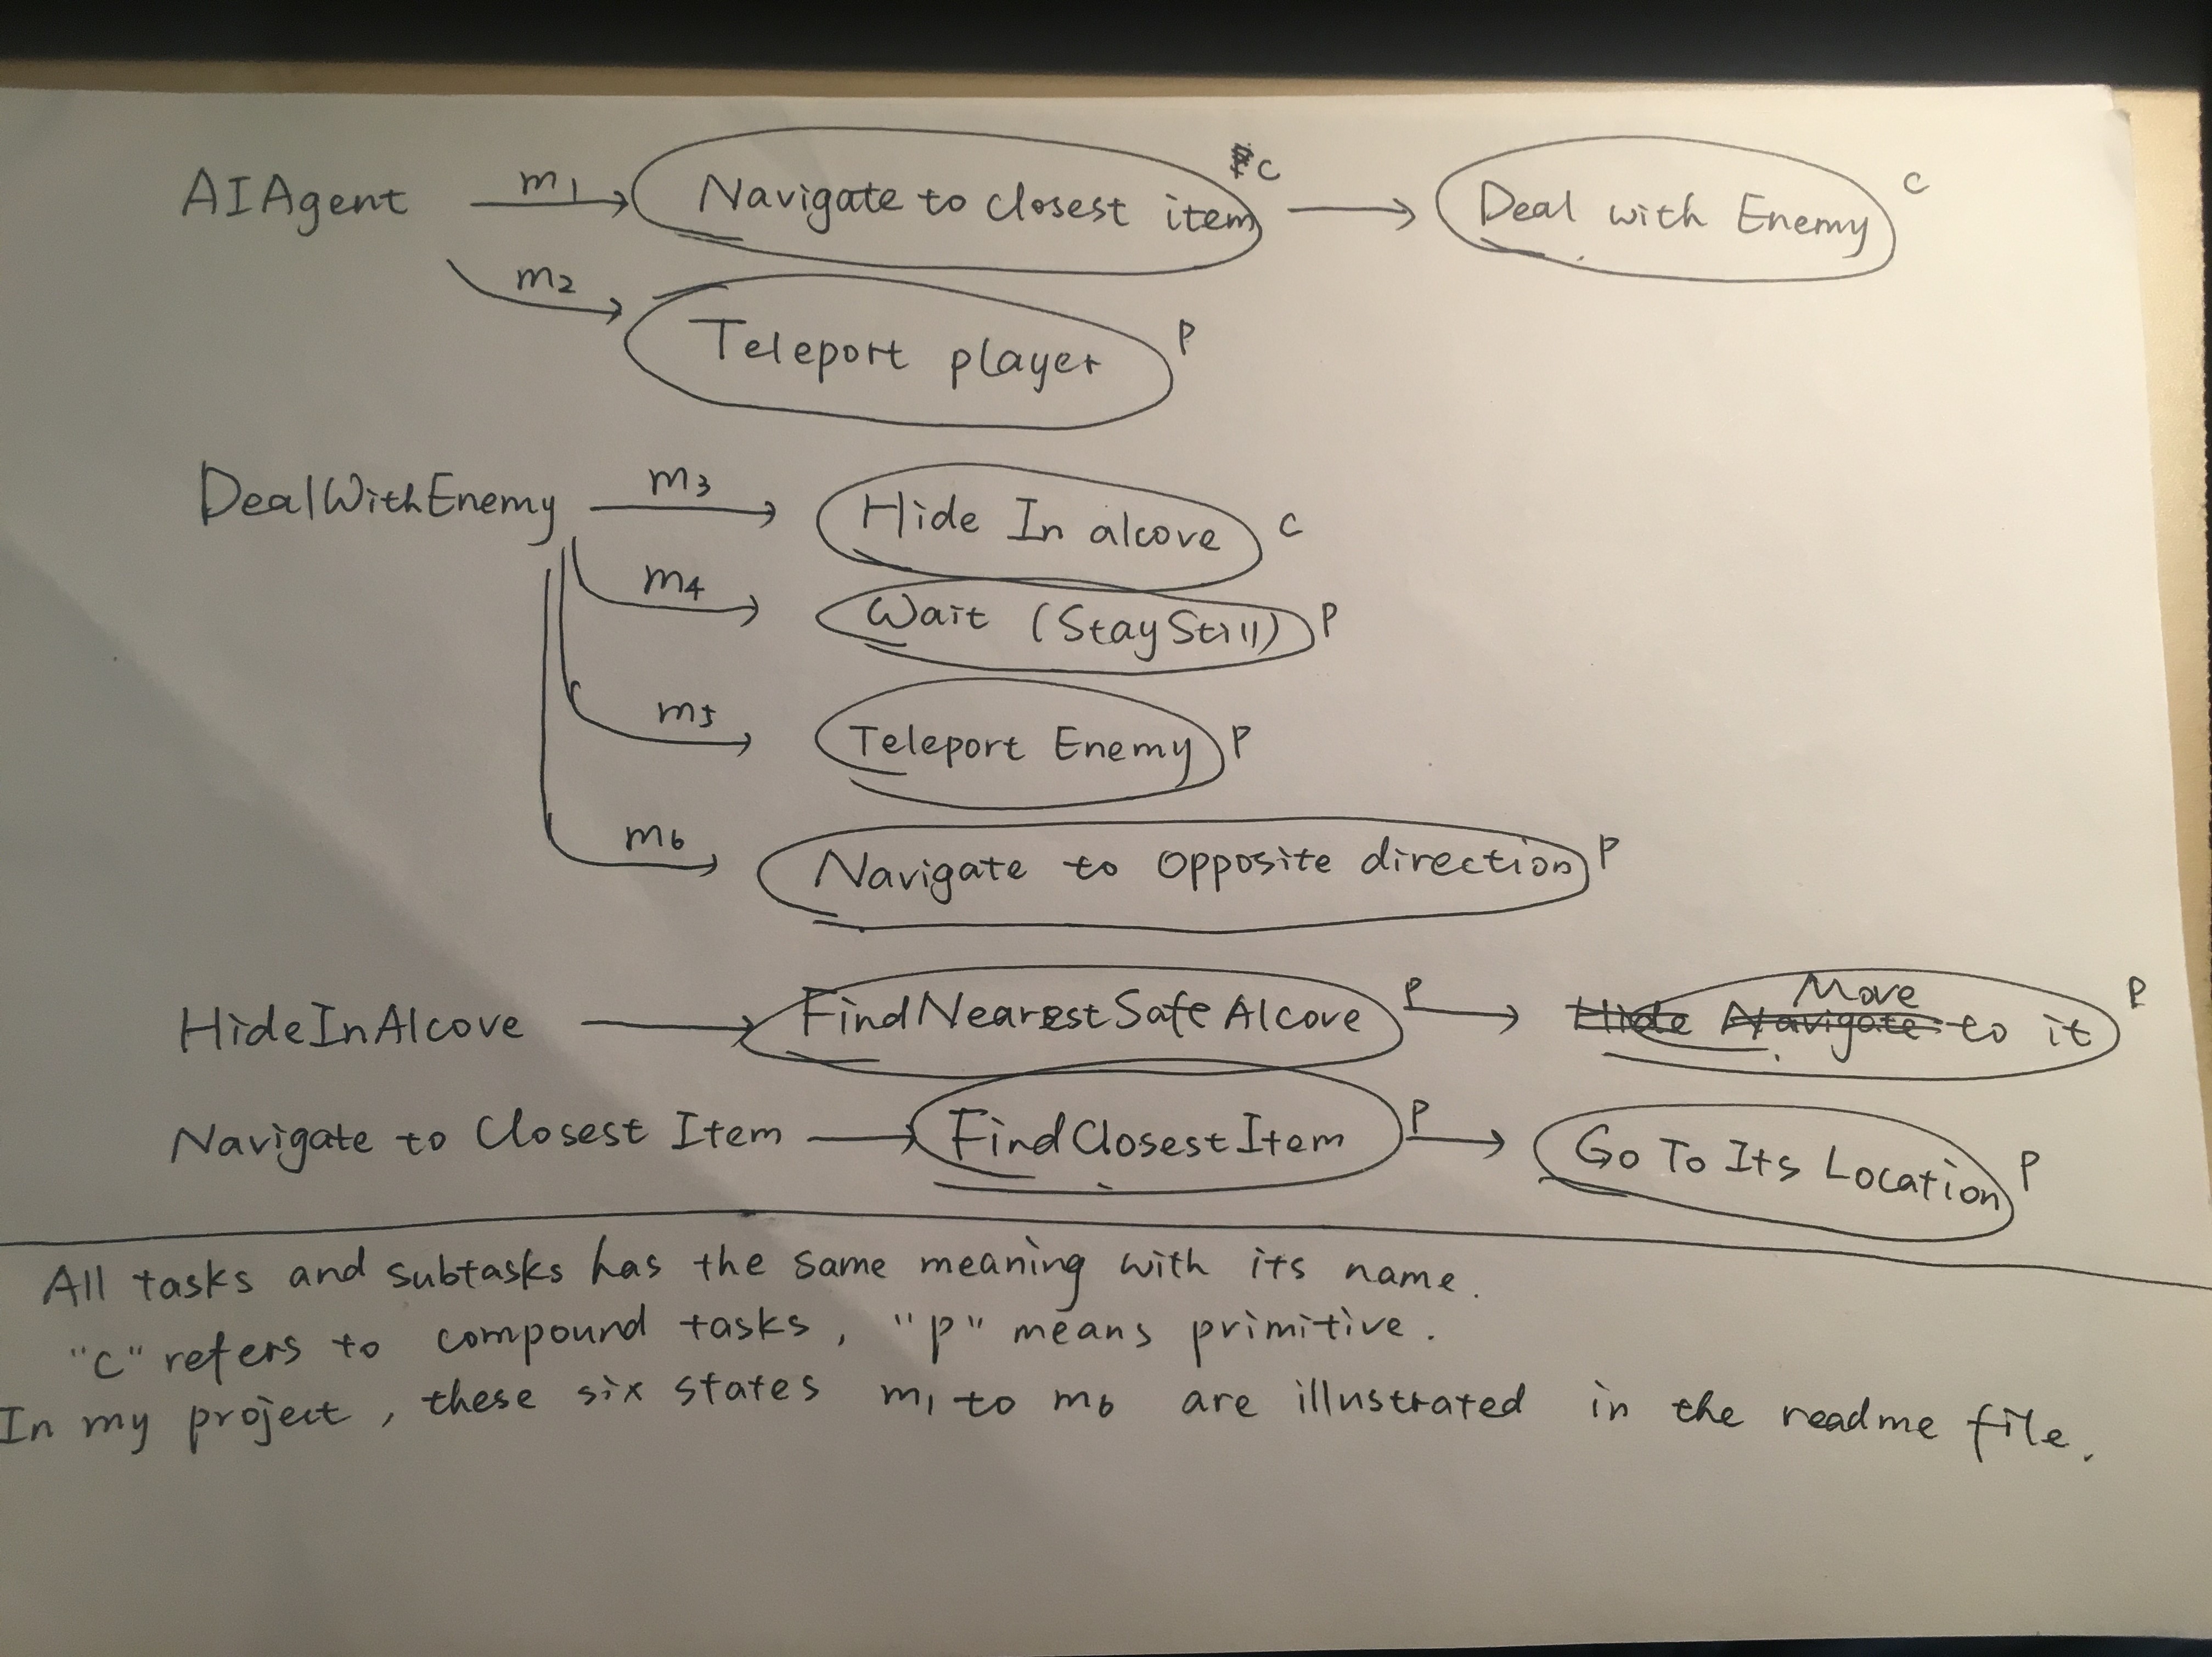 AIAgent m1 Navigate to closest item C Deal with Enemy C
m2 Teleport player P
DealWithEnemy m3 Hide In alcove C
m4 Wait (StayStill) P
m5 Teleport Enemy P
m6 Navigate to opposite direction P
HideInAlcove FindNearestSafeAlcove P Hide Navigate Move to it P
Navigate to Closest Item FindClosestItem P Go To Its Location P
All tasks and subtasks has the same meaning with its name.
"C" refers to compound tasks, "p" means primitive.
In my project, these six states m1 to m6 are illustrated in the readme file.